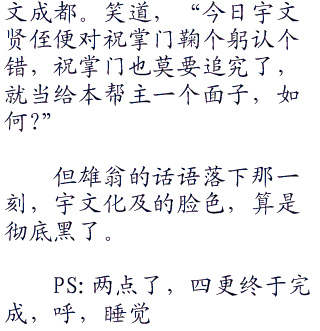 文成都。笑道，“今日宇文
贤侄便对祝掌门鞠个躬认个
错，祝掌门也莫要追究了，
就当给本帮主一个面子，如
何?”
但雄翁的话语落下那一
刻，宇文化及的脸色，算是
彻底黑了。
PS: 两点了，四更终于完
成，呼，睡觉